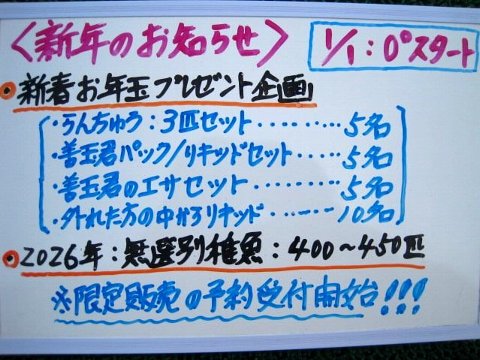 〈新年のお知らせ〉
1/1:0°スタート
新春お年玉プレゼント企画
・らんちゅう:3匹セット………5名
・善玉君パック/リキッドセット……5名
・善玉君のエサセット………5名
・外れた方の中からリキッド……10名
2026年:無選別稚魚:400~450匹
※限定販売の予約受付開始!!!